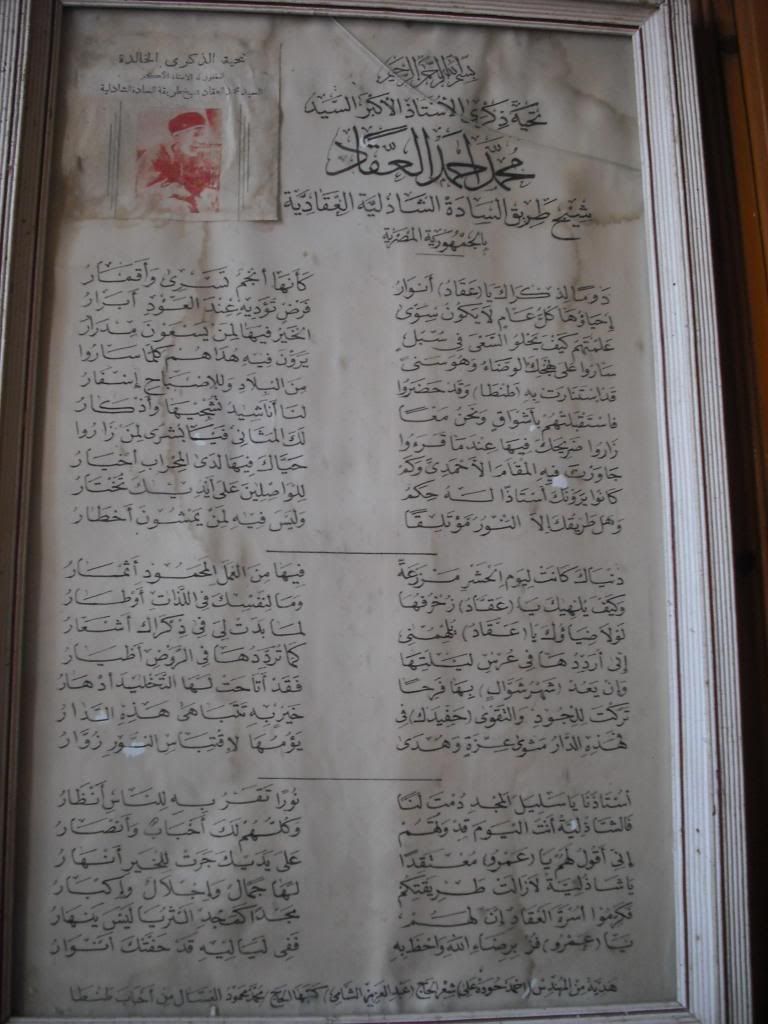 تحية الذكرى الخالدة
السيد محمد العقاد شيخ طريقة السادة الشاذلية
بسم الله الرحمن الرحيم
تحية ذكرى الأستاذ الأكبر السيد
محمد أحمد العقاد
شيخ طريق السادة الشاذلية العقادية
بالجمهورية المصرية
دوما لذكراك يا (عقاد) أنوار كأنها أنجم تسرى وأقمار
إحياؤها كل عام لا يكون سوى فرض تؤديه عند العود أبرار
علمتهم كيف يحلو السعى فى سبل الخير فيها لمن يسعون مدرار
ساروا على نهجك الوضاء وهو سنى يرون فيه هداهم كلما ساروا
قد استنارت به (طنطا) وقد حضروا من البلاد وللإصباح إسفار
فاستقبلتهم بأشواق ونحن معا لنا أناشيد نشجيها وأذكار
زاروا ضريحك فيها عندما قرءوا لك المثانى فيا بشرى لمن زاروا
جاورت فيه المقام الأحمدى وكم حياك فيها لدى المحراب أخيار
كانوا يرونك أستاذا له حكم للواصلين على أيديك تختار
وهل طريقك إلا النور مؤتلقا وليس فيه لمن يمشون أخطار
دنياك كانت ليوم الحشر مزرعة فيها من العمل المحمود أثمار
وكيف يلهيك يا (عقاد) زخرفها وما لنفسك فى اللذات أوطار
لولا ضياؤك يا (عقاد) يلهمنى لما بدت لى فى ذكراك أشعار
إنى أرددها فى عرس ليلتها كما ترددها فى الروض أطيار
وإن يعد (شهر شوال) بها فرحا فقد أتاحت لها التخليد أدهار
تركت للجود والتقوى (حفيدك) فى خير به تتباهى هذه الدار
هذه الدار مثوى عزة وهدى يؤمها لاقتباس النور زوار
أستاذنا يا سليل المجد دمت لنا نورا تقر به للناس أنظار
فالشاذلية أنت اليوم قدوتهم وكلهم لك أحباب وأنصار
إنى أقول لهم يا (عمرو) معتقدا على يديك جرت للخير أنهار
يا شاذلية لازالت طريقتكم لها جمال وإجلال وإكبار
فكرموا أسرة العقاد إن لهم مجدا كمجد الثريا ليس ينهار
يا (عمرو) فز برضاء الله واحظ به ففى لياليه قد حفتك أنوار
هدية من المهندس (أحمد حوده على) شعر الحاج (عبد العزيز الشامى) كتبها الحاج محمد محمود الغسال من أحباب طنطا